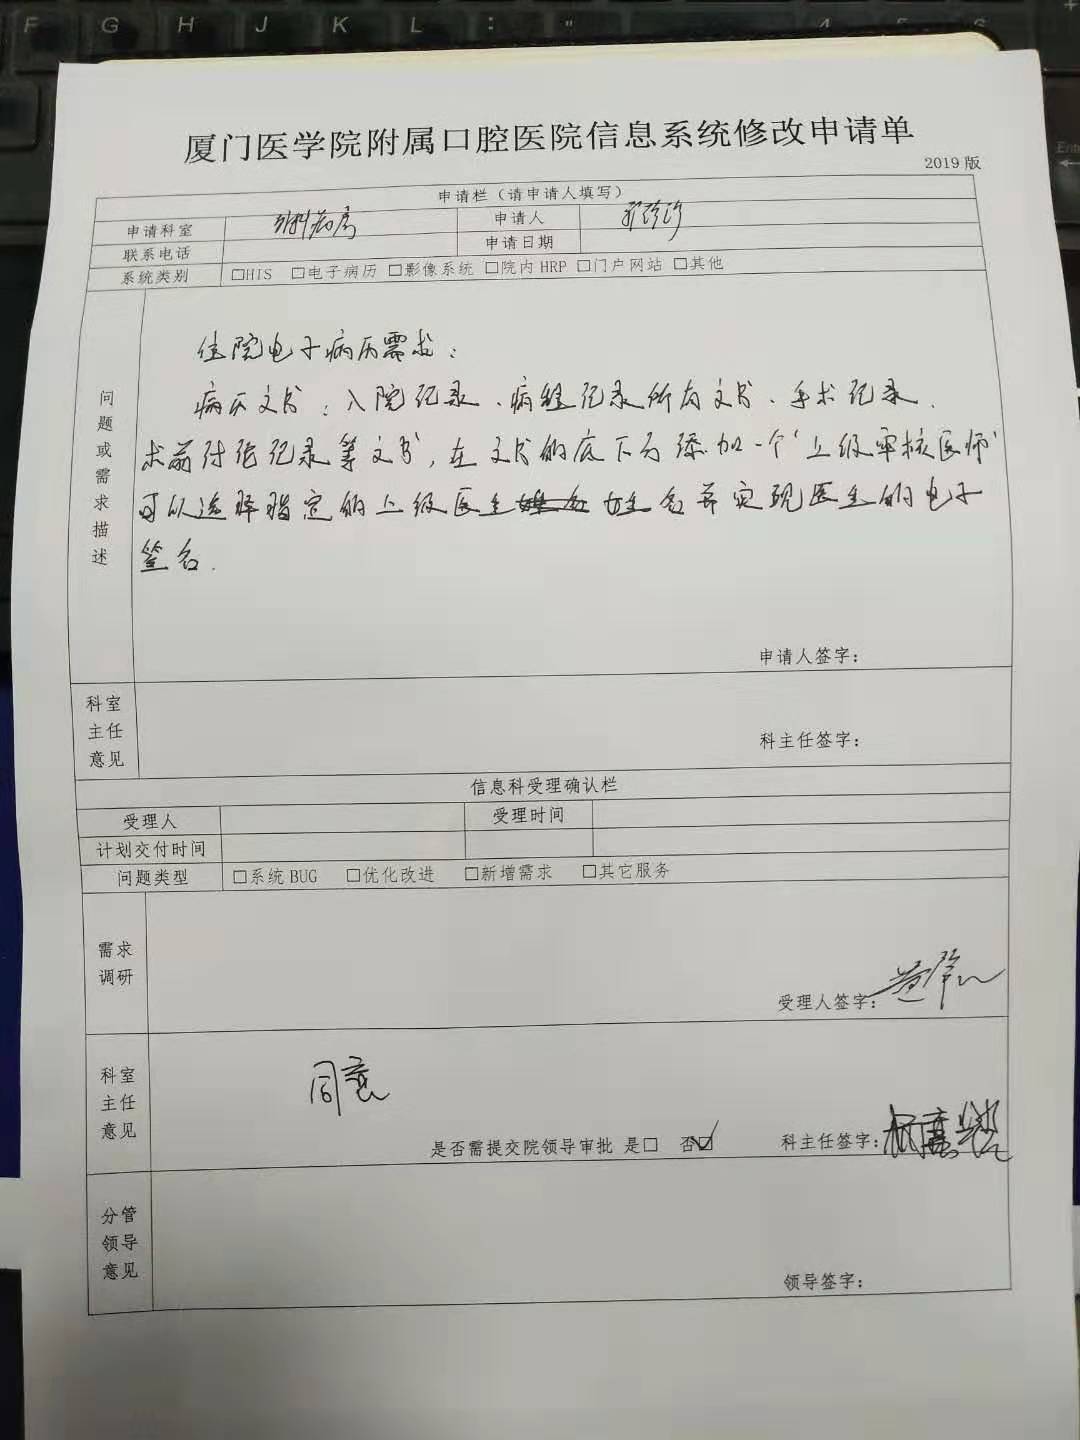 F G H J K L : "
4 5 6
+
Enter
厦门医学院附属口腔医院信息系统修改申请单
2019 版
申请栏（请申请人填写）
申请科室 外科病房 申请人
联系电话 申请日期
系统类别 □HIS □电子病历 □影像系统 □院内 HRP □门户网站 □其他
问题或需求描述
住院电子病历需求：
病历文书：入院记录、病程记录所有文书、手术记录、
术前讨论记录等文书，在文书的底下方添加一个“上级审核医师”
可以选择指定的上级医生姓名并实现医生的电子
签名.
申请人签字：
科室主任意见
科主任签字：
信息科受理确认栏
受理人 受理时间
计划交付时间
问题类型 □系统 BUG □优化改进 □新增需求 □其它服务
需求调研
受理人签字：
科室主任意见
同意
是否需提交院领导审批 是□ 否☑ 科主任签字：
分管领导意见
领导签字：